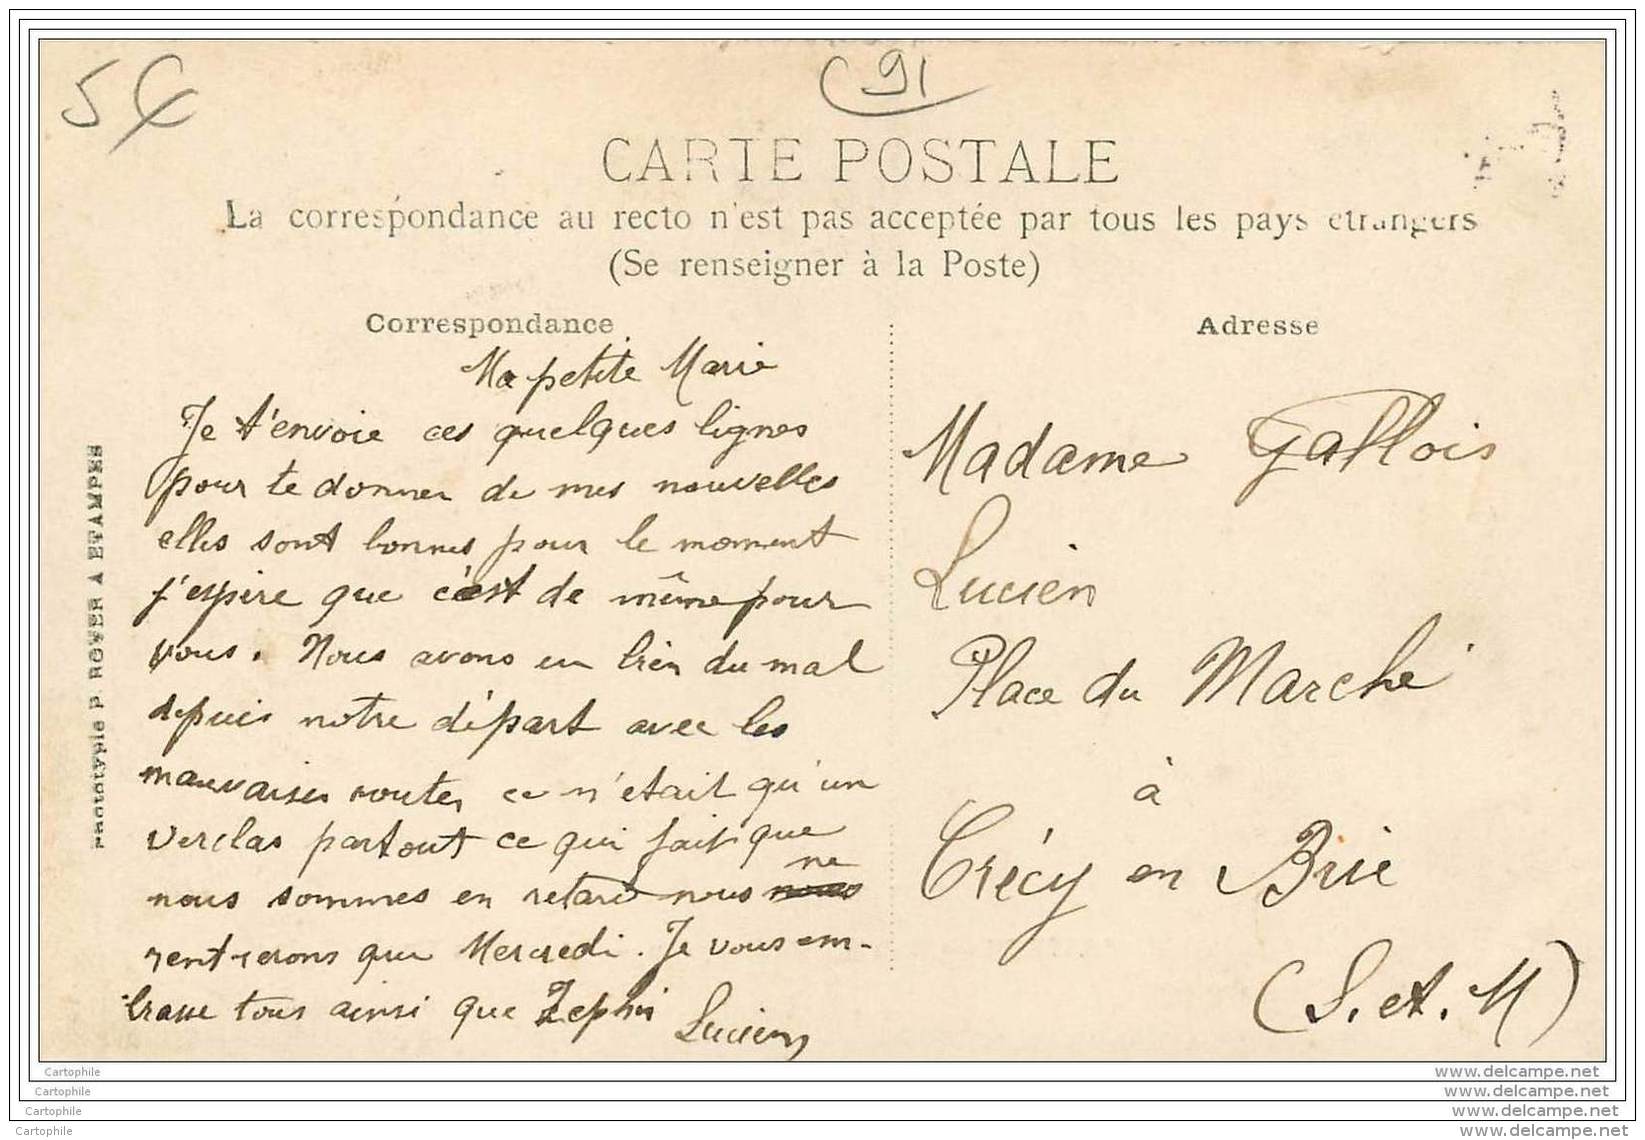 5€
91
CARTE POSTALE
La correspondance au recto n'est pas acceptée par tous les pays étrangers
(Se renseigner à la Poste)
Correspondance
Ma petite Marie
Je t'envoie ces quelques lignes
pour te donner de mes nouvelles
elles sont bonnes pour le moment
j'espère que c'est de même pour
vous. Nous avons eu bien du mal
depuis notre départ avec les
mauvaises routes, ce n'était qu'un
verclas partout ce qui fait que
nous sommes en retard nous ne
rentrerons que Mercredi. Je vous em-
brasse tous ainsi que Zephir
Lucien
Adresse
Madame Gallois
Lucien
Place du Marché
à
Crécy en Brie
(S. et. M)
Phototypie P. ROYER A ETAMPES
Cartophile
Cartophile
Cartophile
Cartophile
www.delcampe.net
www.delcampe.net
www.delcampe.net
www.delcampe.net